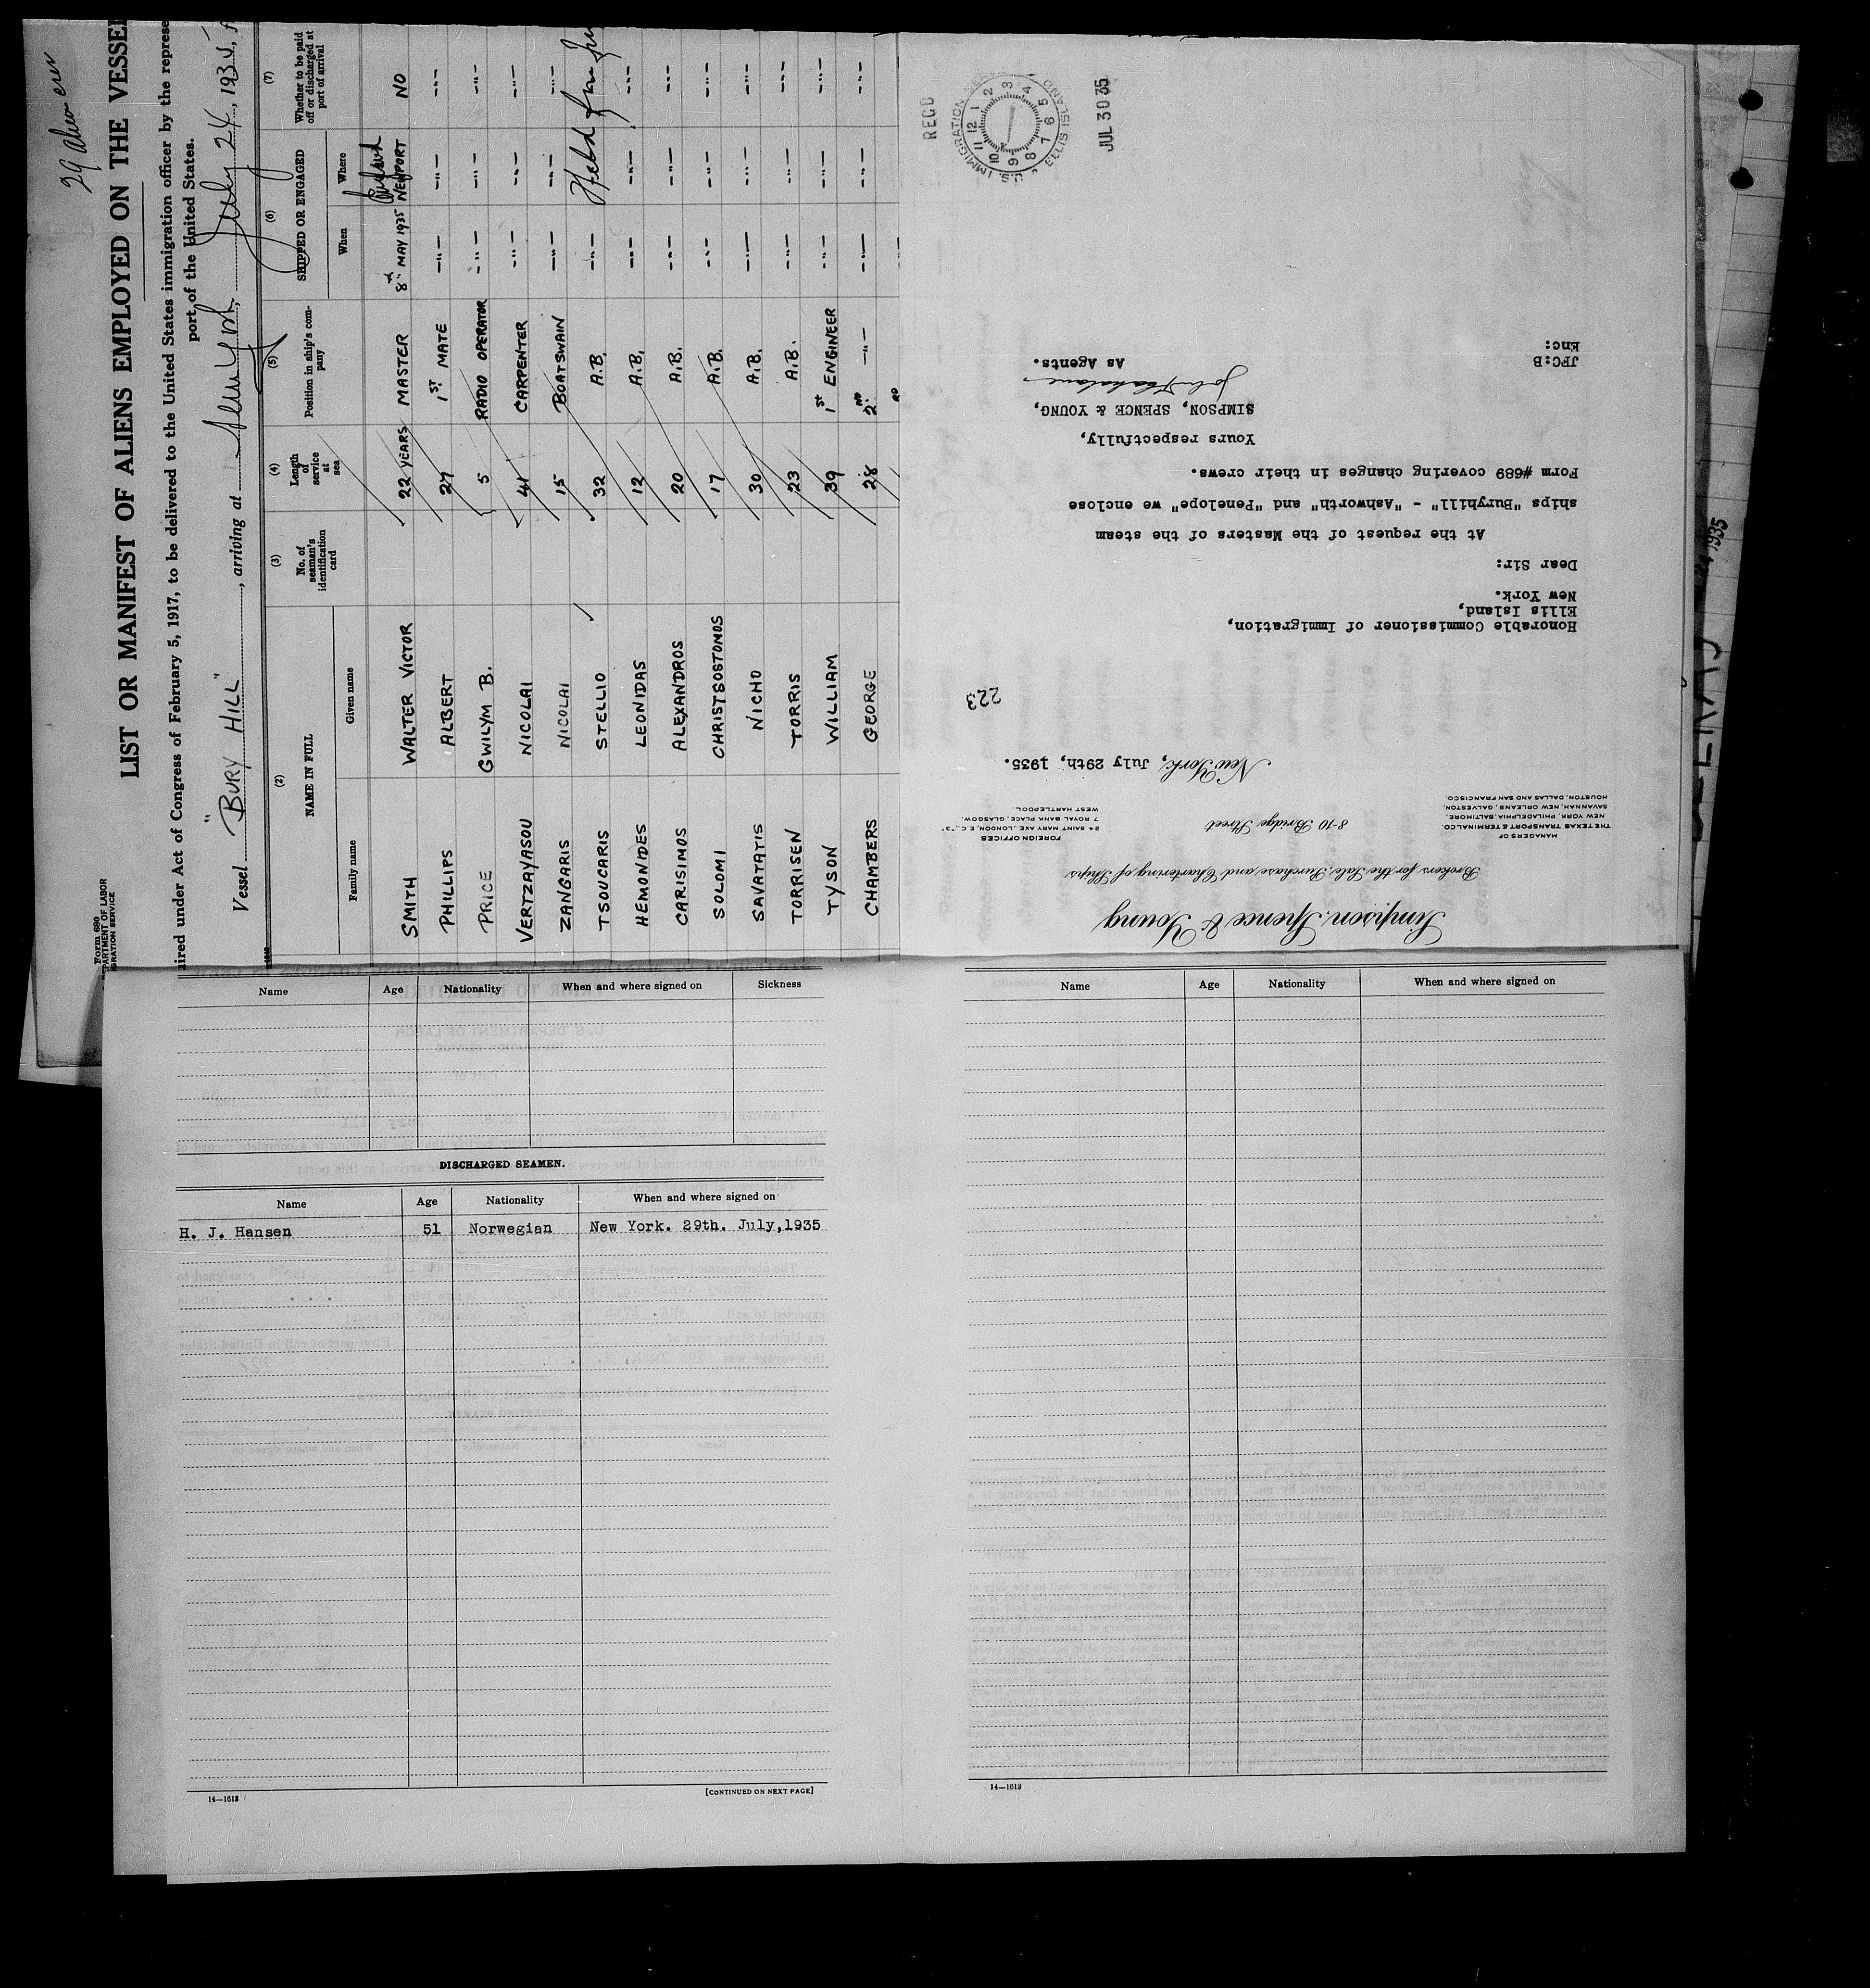 29 alien crew
LIST OR MANIFEST OF ALIENS EMPLOYED ON THE VESSEL
Form 680
ired under Act of Congress of February 5, 1917, to be delivered to the United States immigration officer by the represe
port of the United States.
Vessel "BURY HILL", arriving at New York, July 24, 1935,
(2) (3) (4) (5) (6) (7)
NAME IN FULL No. of seaman's identification card Length of service at sea Position in ship's company SHIPPED OR ENGAGED Whether to be paid off or discharged at port of arrival
Family name Given name When Where
SMITH WALTER VICTOR 22 YEARS MASTER 8th MAY 1935 NEWPORT NO
PHILLIPS ALBERT 27 1ST MATE -"- -"- -"-
PRICE GWILYM B. 5 RADIO OPERATOR -"- -"- -"-
VERTZAYASOU NICOLAI 41 CARPENTER -"- -"- -"-
ZANGARIS NICOLAI 15 BOATSWAIN -"- -"- -"-
TSOUCARIS STELLIO 32 A.B. -"- Held for
HEMONIDES LEONIDAS 12 A.B. -"- -"- -"-
CARISIMOS ALEXANDROS 20 A.B. -"- -"- -"-
SOLOMI CHRISTSOSTOMOS 17 A.B. -"- -"- -"-
SAVATATIS NICHO 30 A.B. -"- -"- -"-
TORRISEN TORRIS 23 A.B. -"- -"- -"-
TYSON WILLIAM 39 1ST ENGINEER -"- -"- -"-
CHAMBERS GEORGE 28 2ND -"- -"- -"- -"-
Simpson, Spence & Young
Brokers for the Sale, Purchase and Chartering of Ships
MANAGERS OF
THE TEXAS TRANSPORT & TERMINAL CO.
NEW YORK, PHILADELPHIA, BALTIMORE,
SAVANNAH, NEW ORLEANS, GALVESTON,
HOUSTON, DALLAS AND SAN FRANCISCO.
8-10 Bridge Street
FOREIGN OFFICES
24 SAINT MARY AXE, LONDON, E.C. "3"
7 ROYAL BANK PLACE, GLASGOW.
WEST HARTLEPOOL.
New York, July 29th, 1935.
223
Honorable Commissioner of Immigration,
Ellis Island,
New York.
Dear Sir:
At the request of the Masters of the steam
ships "Buryhill" - "Ashworth" and "Penelope" we enclose
Form #689 covering changes in their crews.
Yours respectfully,
SIMPSON, SPENCE & YOUNG,
As Agents.
JFC:B
Enc:
RECD
U.S. IMMIGRATION SERVICE ELLIS ISLAND
JUL 30 35
Name Age Nationality When and where signed on Sickness
DISCHARGED SEAMEN.
Name Age Nationality When and where signed on
H. J. Hansen 51 Norwegian New York. 29th. July,1935
14—1613
[CONTINUED ON NEXT PAGE]
Name Age Nationality When and where signed on
14—1613